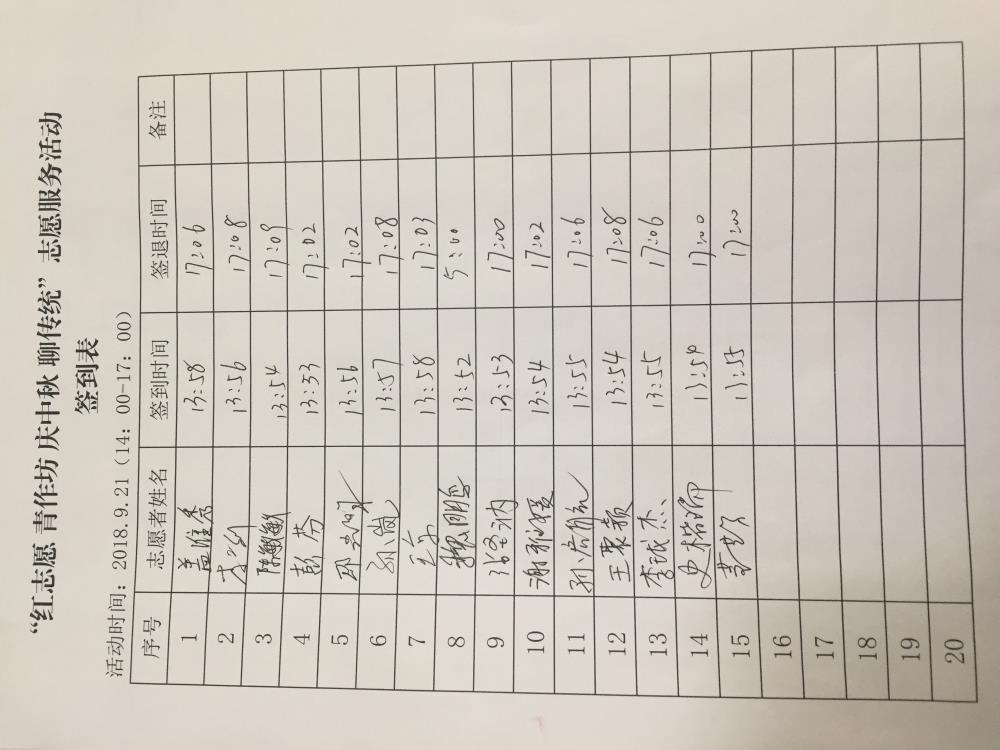 “红志愿 青作坊 庆中秋 聊传统” 志愿服务活动
签到表
活动时间：2018.9.21（14：00-17：00）
序号 志愿者姓名 签到时间 签退时间 备注
1 13:58 17:06
2 13:56 17:08
3 陈敏敏 13:54 17:09
4 彭芬 13:53 17:02
5 13:56 17:02
6 孙岚 13:57 17:08
7 13:58 17:03
8 13:52 5:00
9 13:53 17:00
10 13:54 17:02
11 13:55 17:06
12 13:54 17:08
13 13:55 17:06
14 13:54 17:00
15 13:55 17:00
16
17
18
19
20